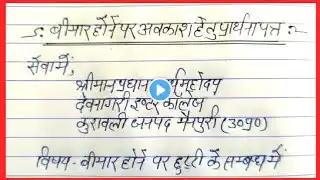 बीमार होने पर अवकाश हेतु प्रार्थना पत्र
सेवा में,
श्रीमान प्रधान महोदय
देवनागरी इण्टर कालेज
कुरावली जनपद मैनपुरी (उ०प्र०)
विषय- बीमार होने पर छुट्टी के सम्बन्ध में